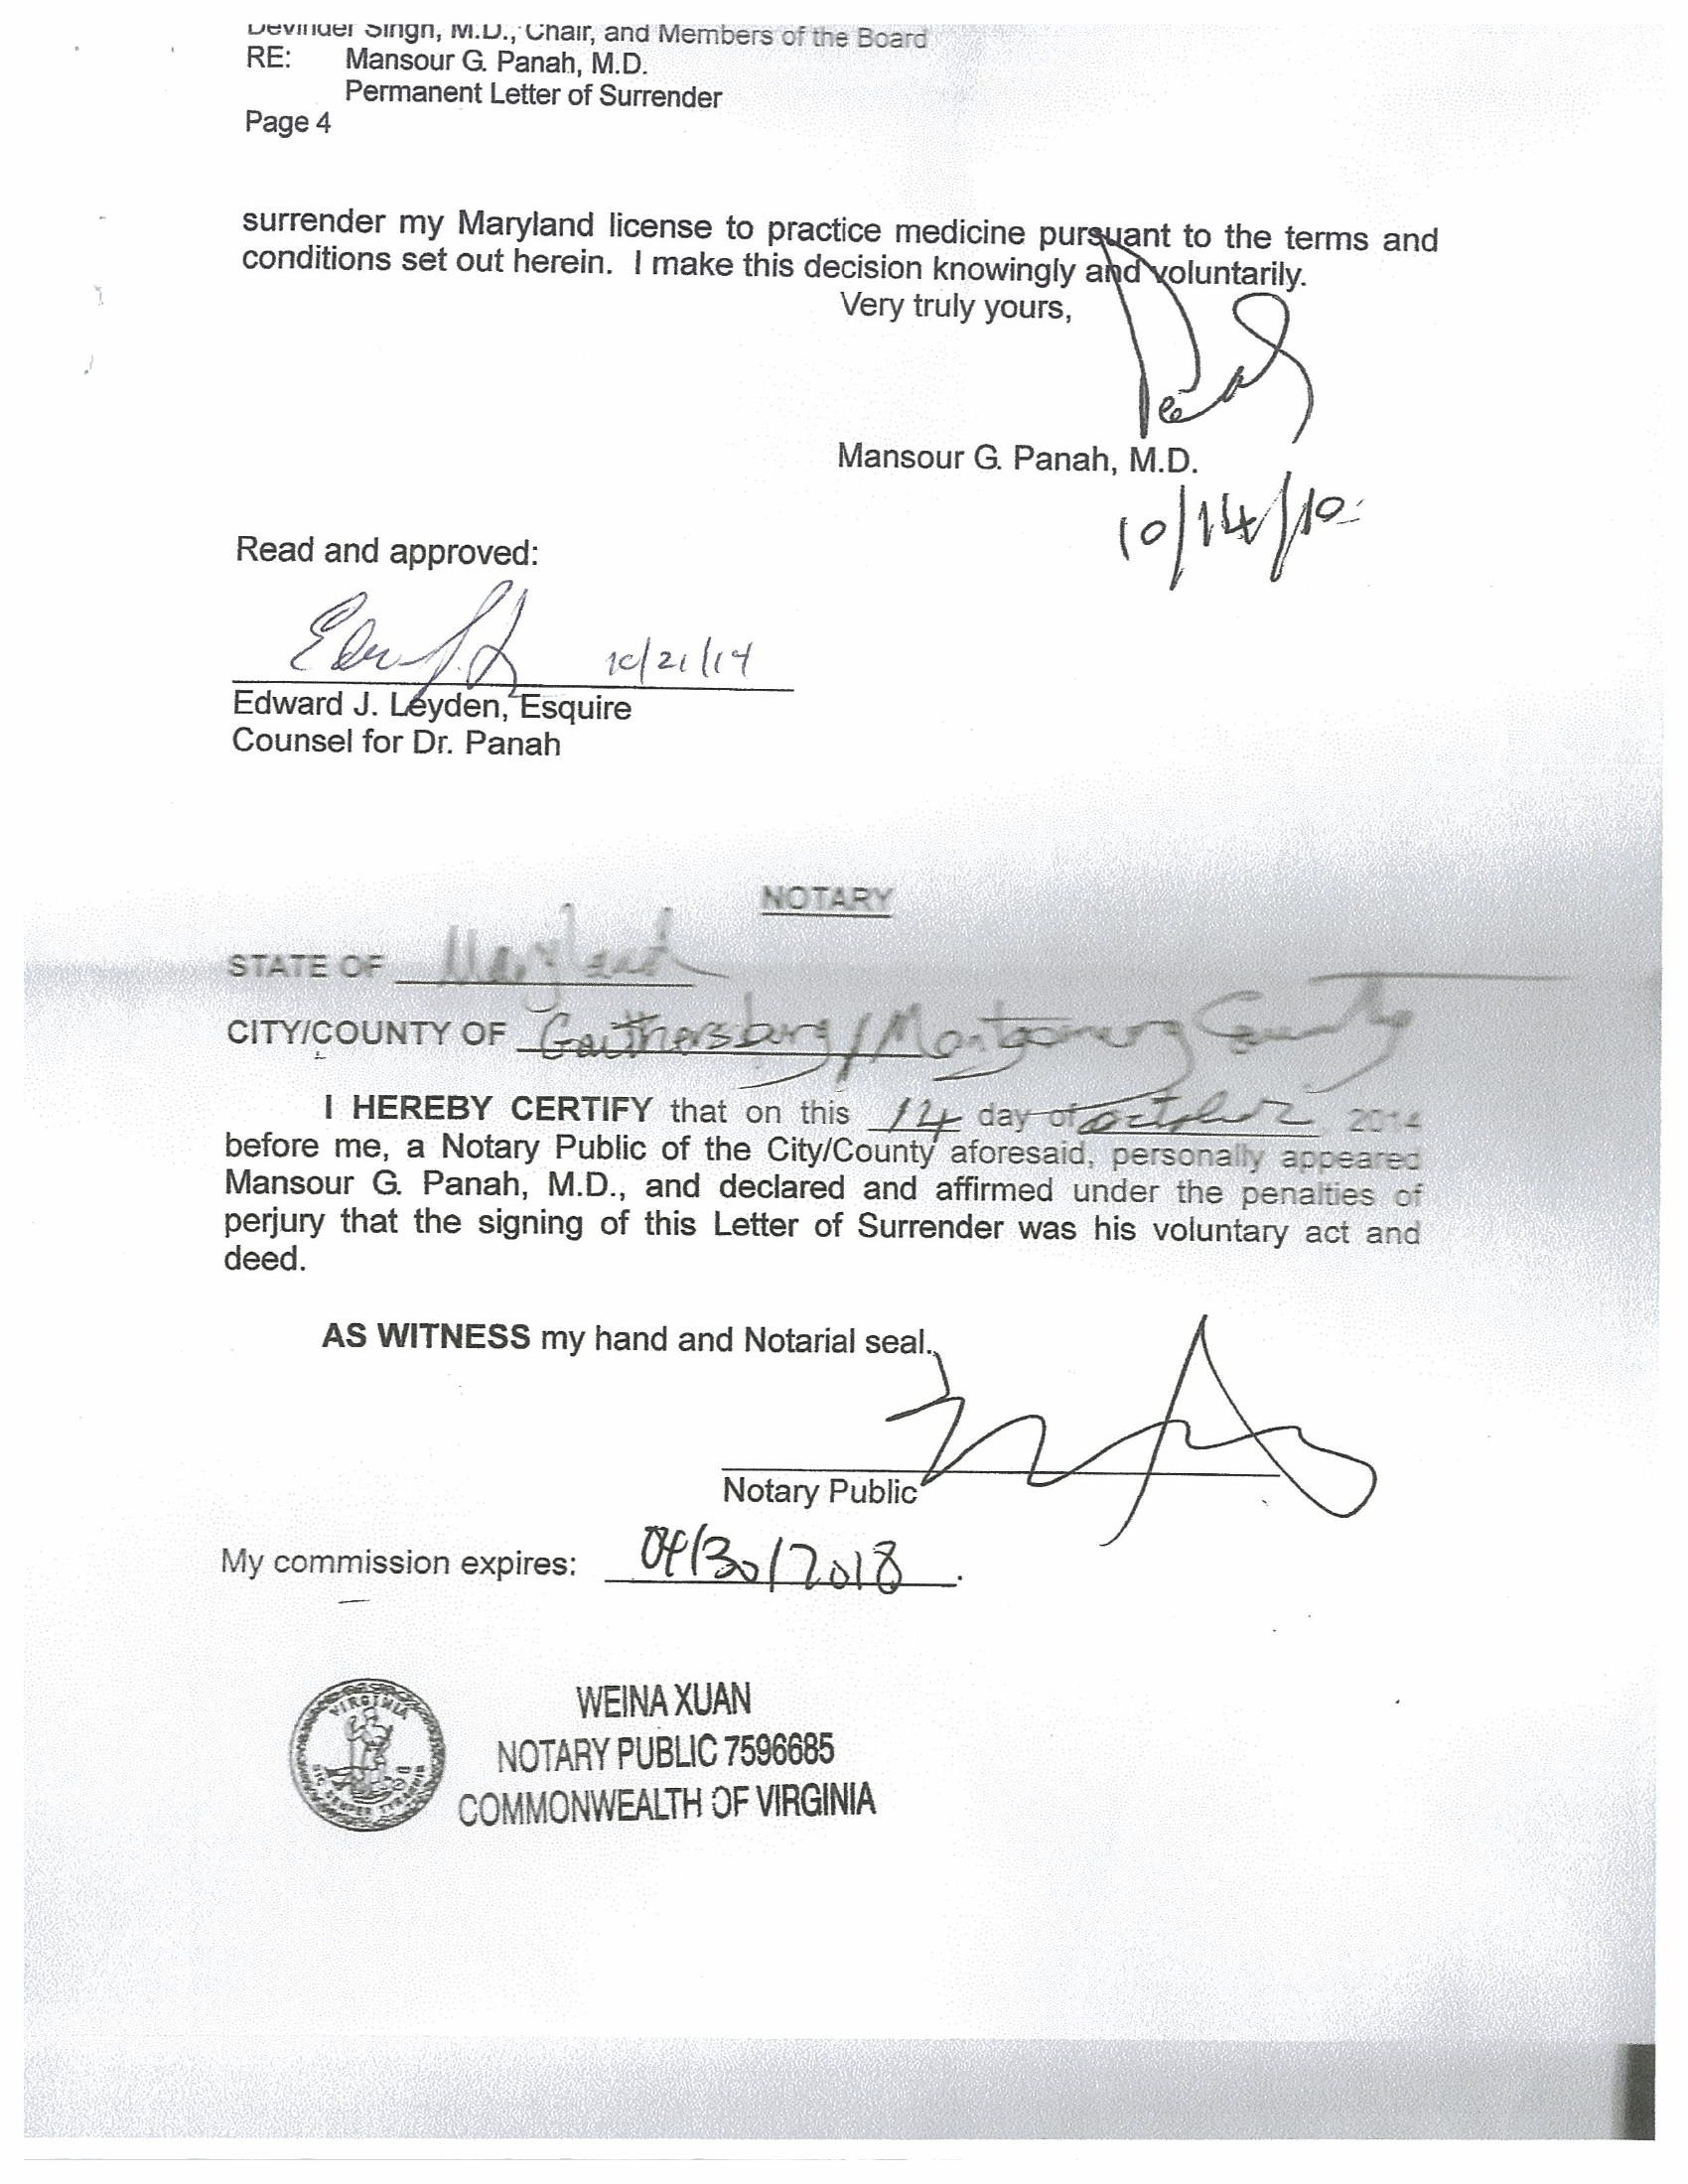 Devinder Singh, M.D., Chair, and Members of the Board
RE: Mansour G. Panah, M.D.
Permanent Letter of Surrender
Page 4
surrender my Maryland license to practice medicine pursuant to the terms and
conditions set out herein. I make this decision knowingly and voluntarily.
Very truly yours,
Mansour G. Panah, M.D.
10/14/10
Read and approved:
10/21/14
Edward J. Leyden, Esquire
Counsel for Dr. Panah
NOTARY
STATE OF Maryland
CITY/COUNTY OF Gaithersburg/Montgomery County
I HEREBY CERTIFY that on this 14 day of october 2014
before me, a Notary Public of the City/County aforesaid, personally appeared
Mansour G. Panah, M.D., and declared and affirmed under the penalties of
perjury that the signing of this Letter of Surrender was his voluntary act and
deed.
AS WITNESS my hand and Notarial seal.
Notary Public
My commission expires: 04/30/2018.
VIRGINIA
SIC SEMPER TYRANNIS
WEINA XUAN
NOTARY PUBLIC 7596685
COMMONWEALTH OF VIRGINIA